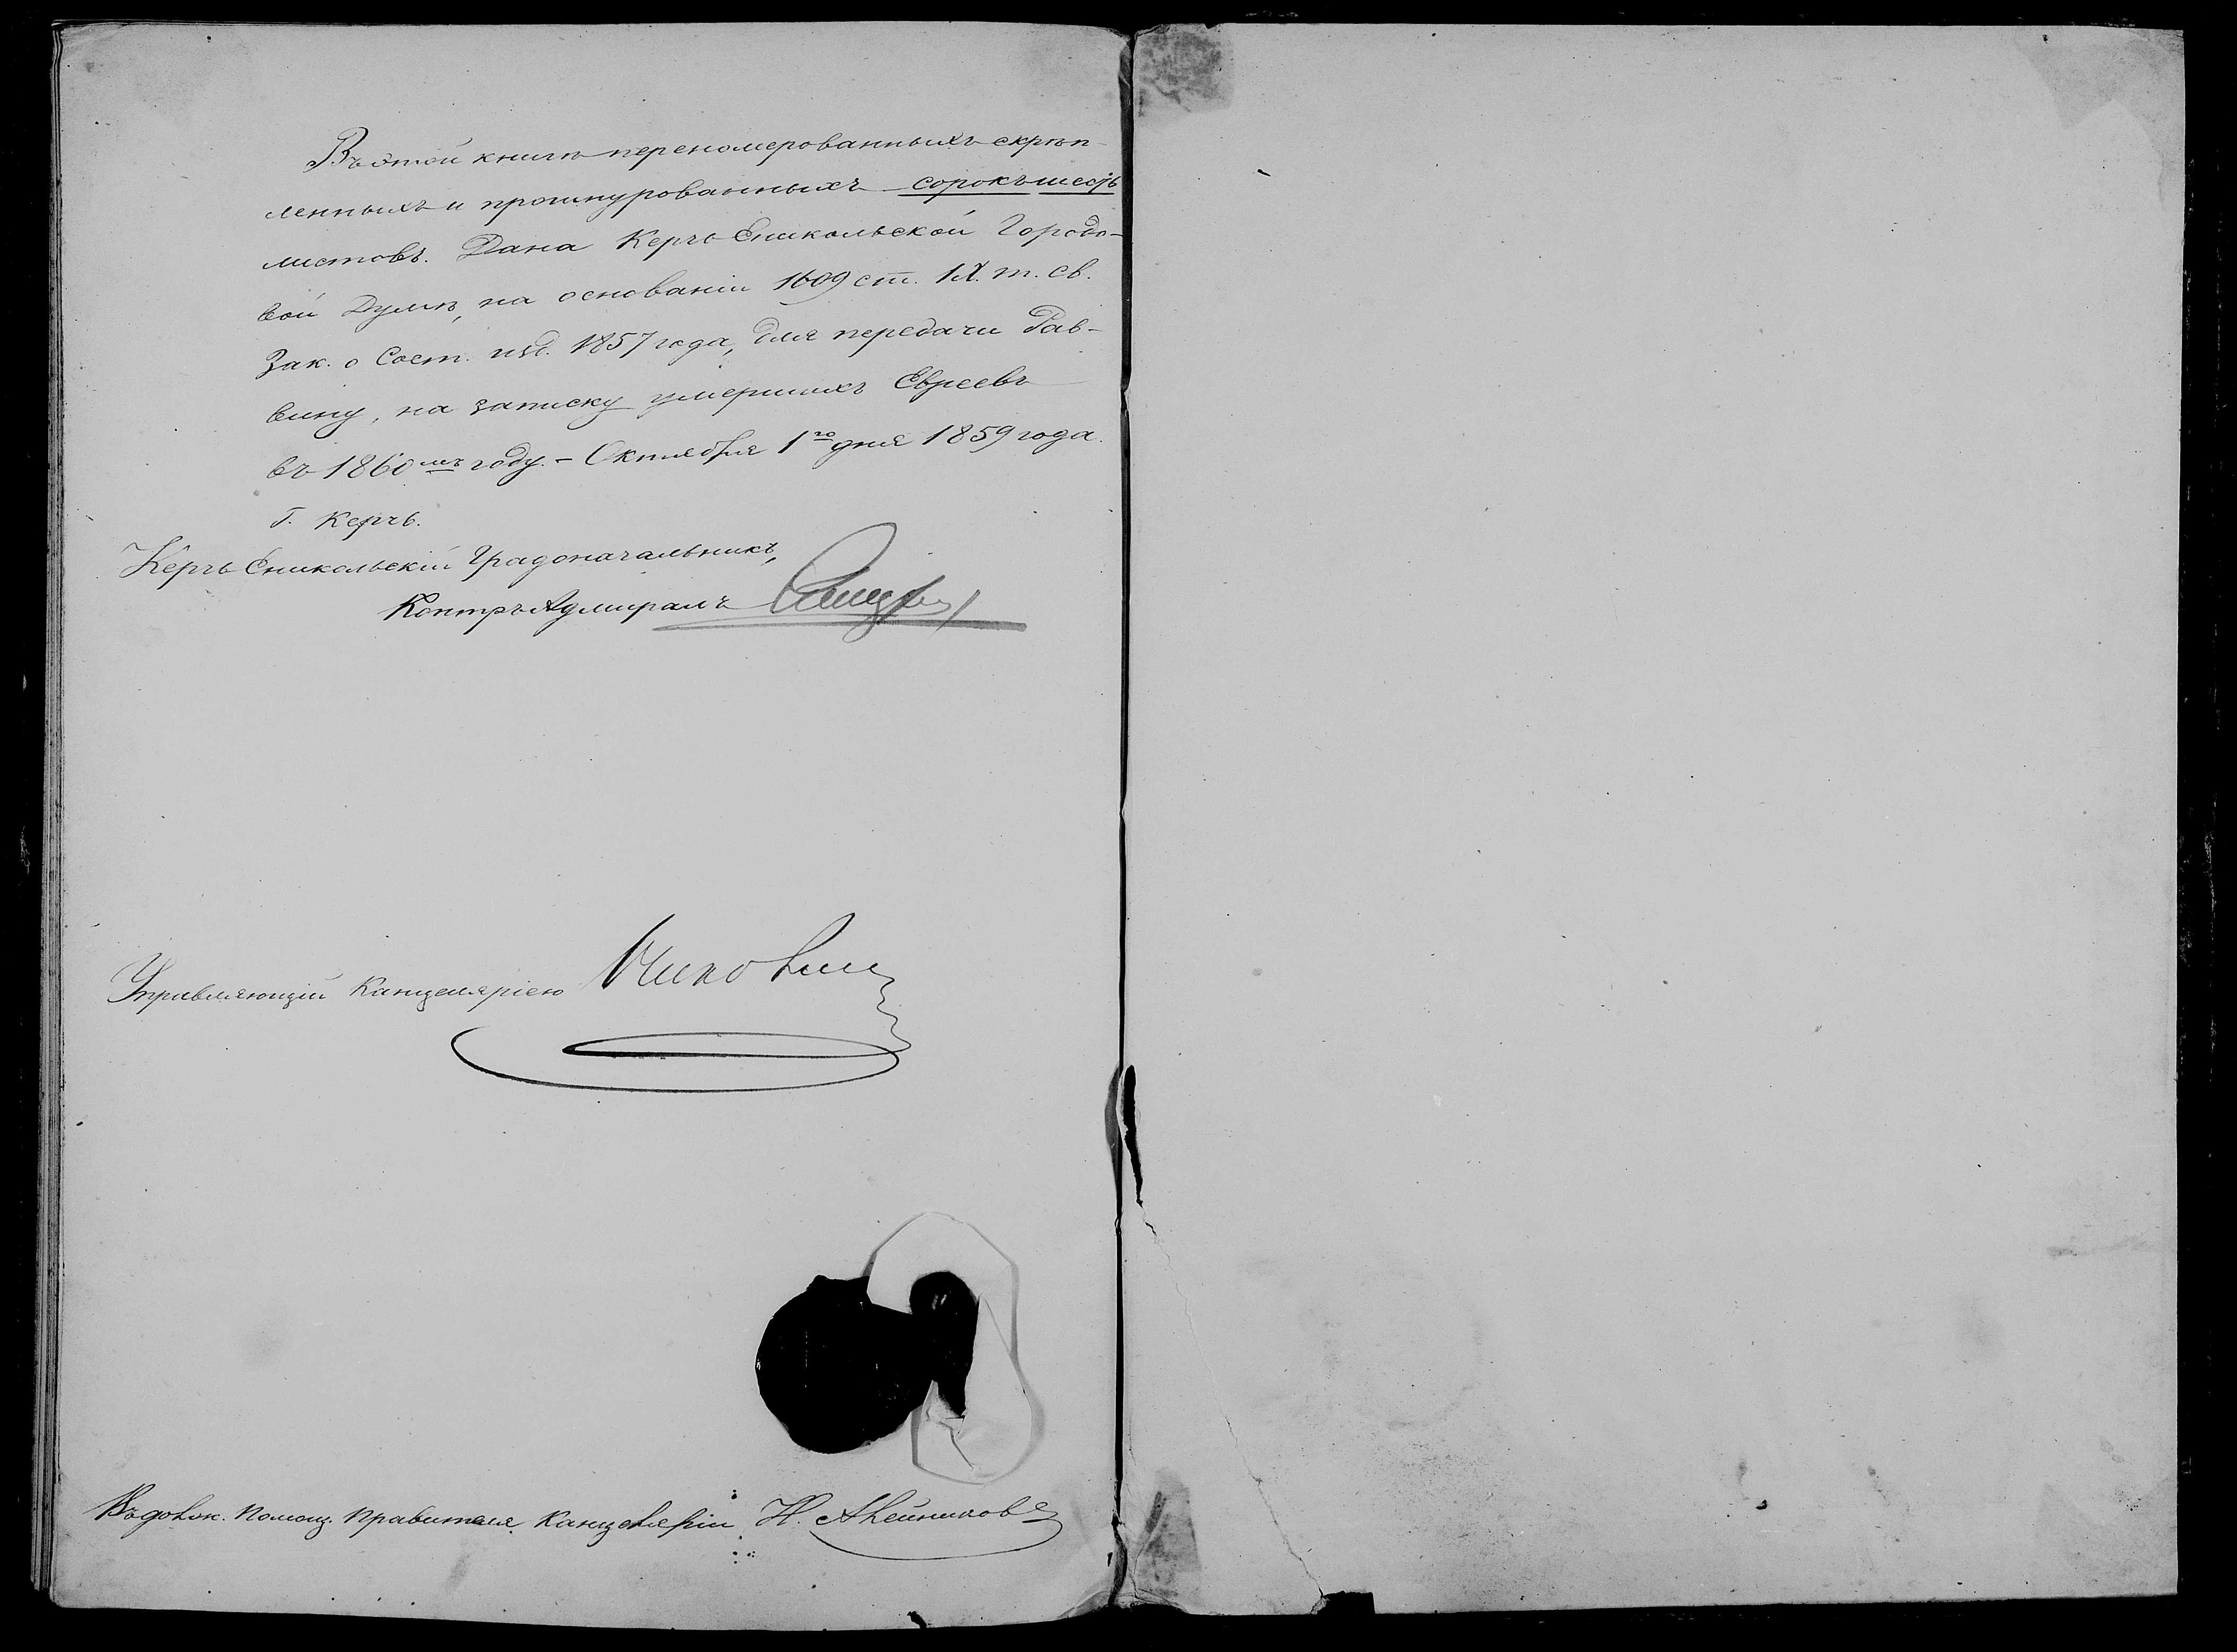 Въ этой книгѣ перенумерованныхъ скрѣп-
ленныхъ и прошнурованныхъ сорокъ шесть
листовъ. Дана Керчь Еникольской Городо-
вой Думѣ, на основаніи 1609 ст. IX. т. св.
Зак. о Сост. изд. 1857 года, для передачи Рав-
вину, на записку умершихъ Евреевъ
въ 1860мъ году. – Октября 1го дня 1859 года.
Г. Керчь.
Керчь Еникольскій Градоначальникъ,
Контръ Адмиралъ
Управляющій Канцеляріею
Въ долж. Помощ. Правителя Канцеляріи Н.